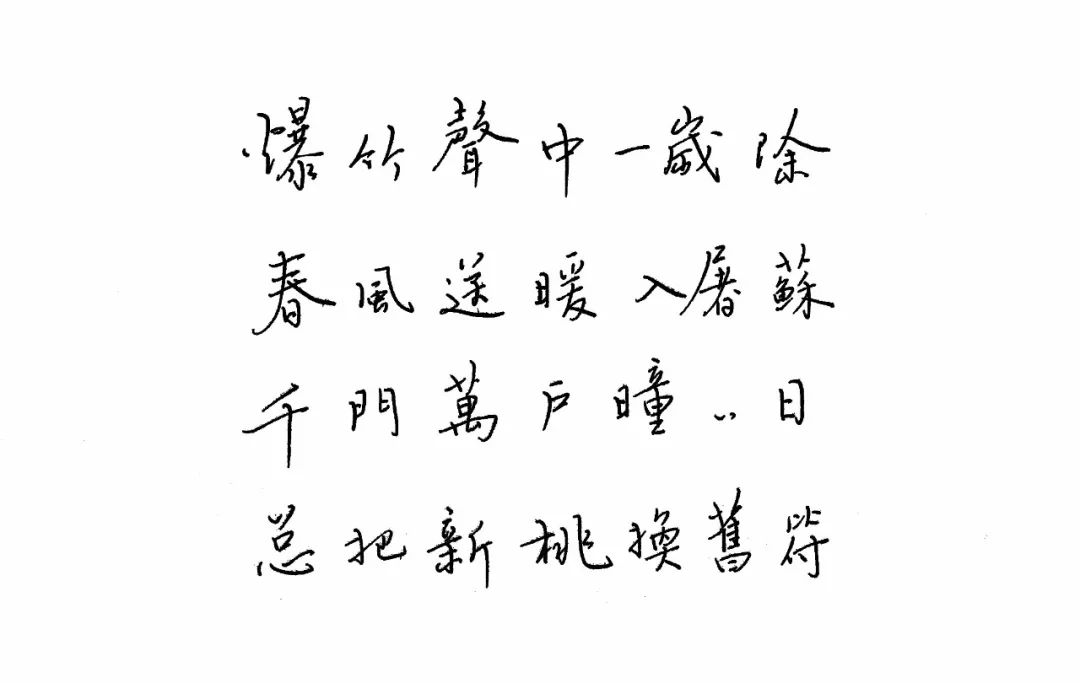 爆竹聲中一歲除
春風送暖入屠蘇
千門萬戶曈〻日
总把新桃換舊符